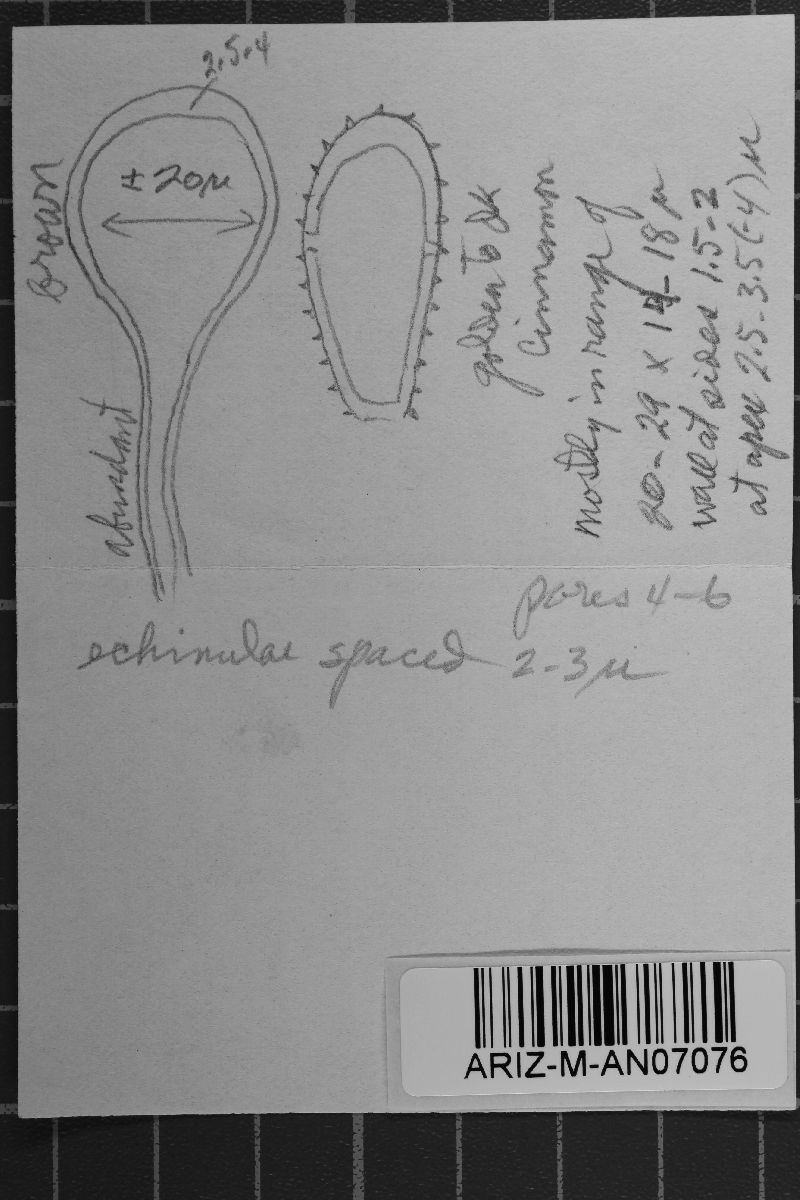 2.5-4
± 20µ
brown
abundant
golden to dk
cinnamon
mostly in range of
20-29 x 14-18 µ
wall at sides 1.5-2
at apex 2.5-3.5(-4)µ
pores 4-6
echinulae spaced 2-3µ
ARIZ-M-AN07076